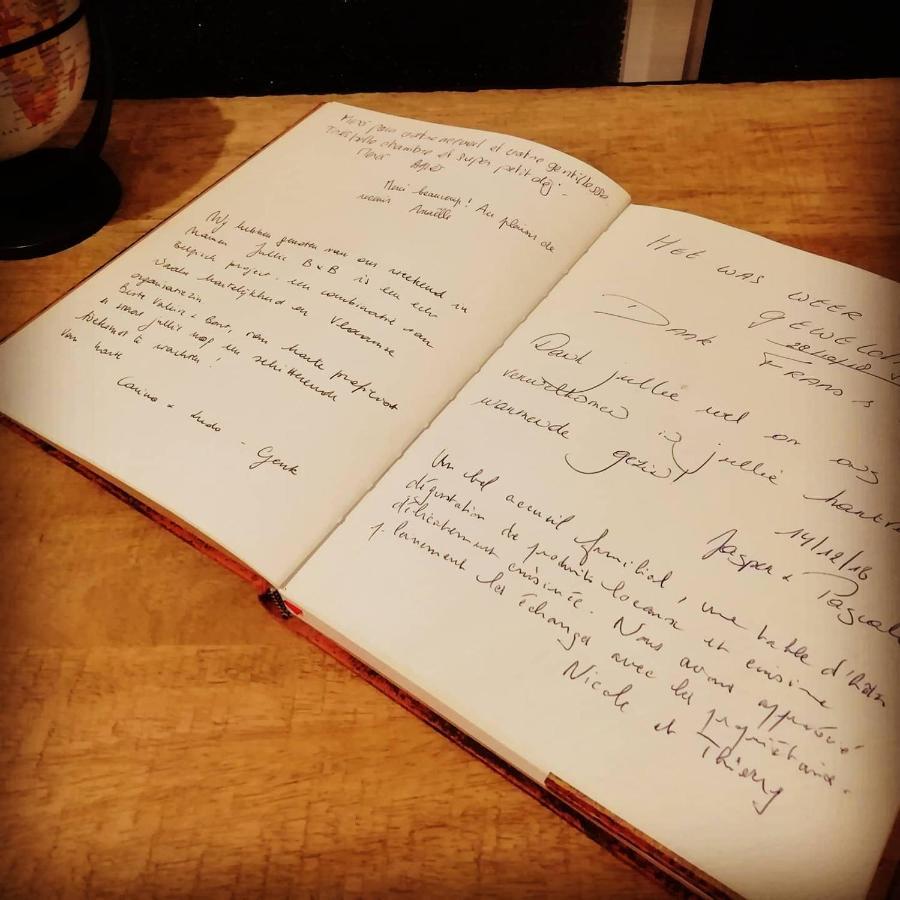 Merci pour votre accueil et votre gentillesse
Très belle chambre et super petit dej.
Merci
Merci beaucoup! Au plaisir de
revenir Anaëlle
Wij hebben genoten van ons weekend in
Namen. Jullie B&B is een echt
Belgisch project: een combinatie van
Waalse hartelijkheid en Vlaamse
organisatiezin
Beste Valérie & Bart, van harte proficiat
& moge jullie nog een schitterende
toekomst te wachten!
Van harte
Carina & Ludo - Genk
HET WAS WEER
GEWELDI
DANK
28/10/18
FRANS &
Dank jullie wel om ons
verwelkomen in jullie
warmende gezin
14/12/18
Jasper & Pascale
Un bel accueil familial, une table d'hôtes
dégustation de produits locaux et cuisine
délicatement cuisinée. Nous avons apprécié
pleinement les échanges avec les propriétaires.
Nicole et Thierry